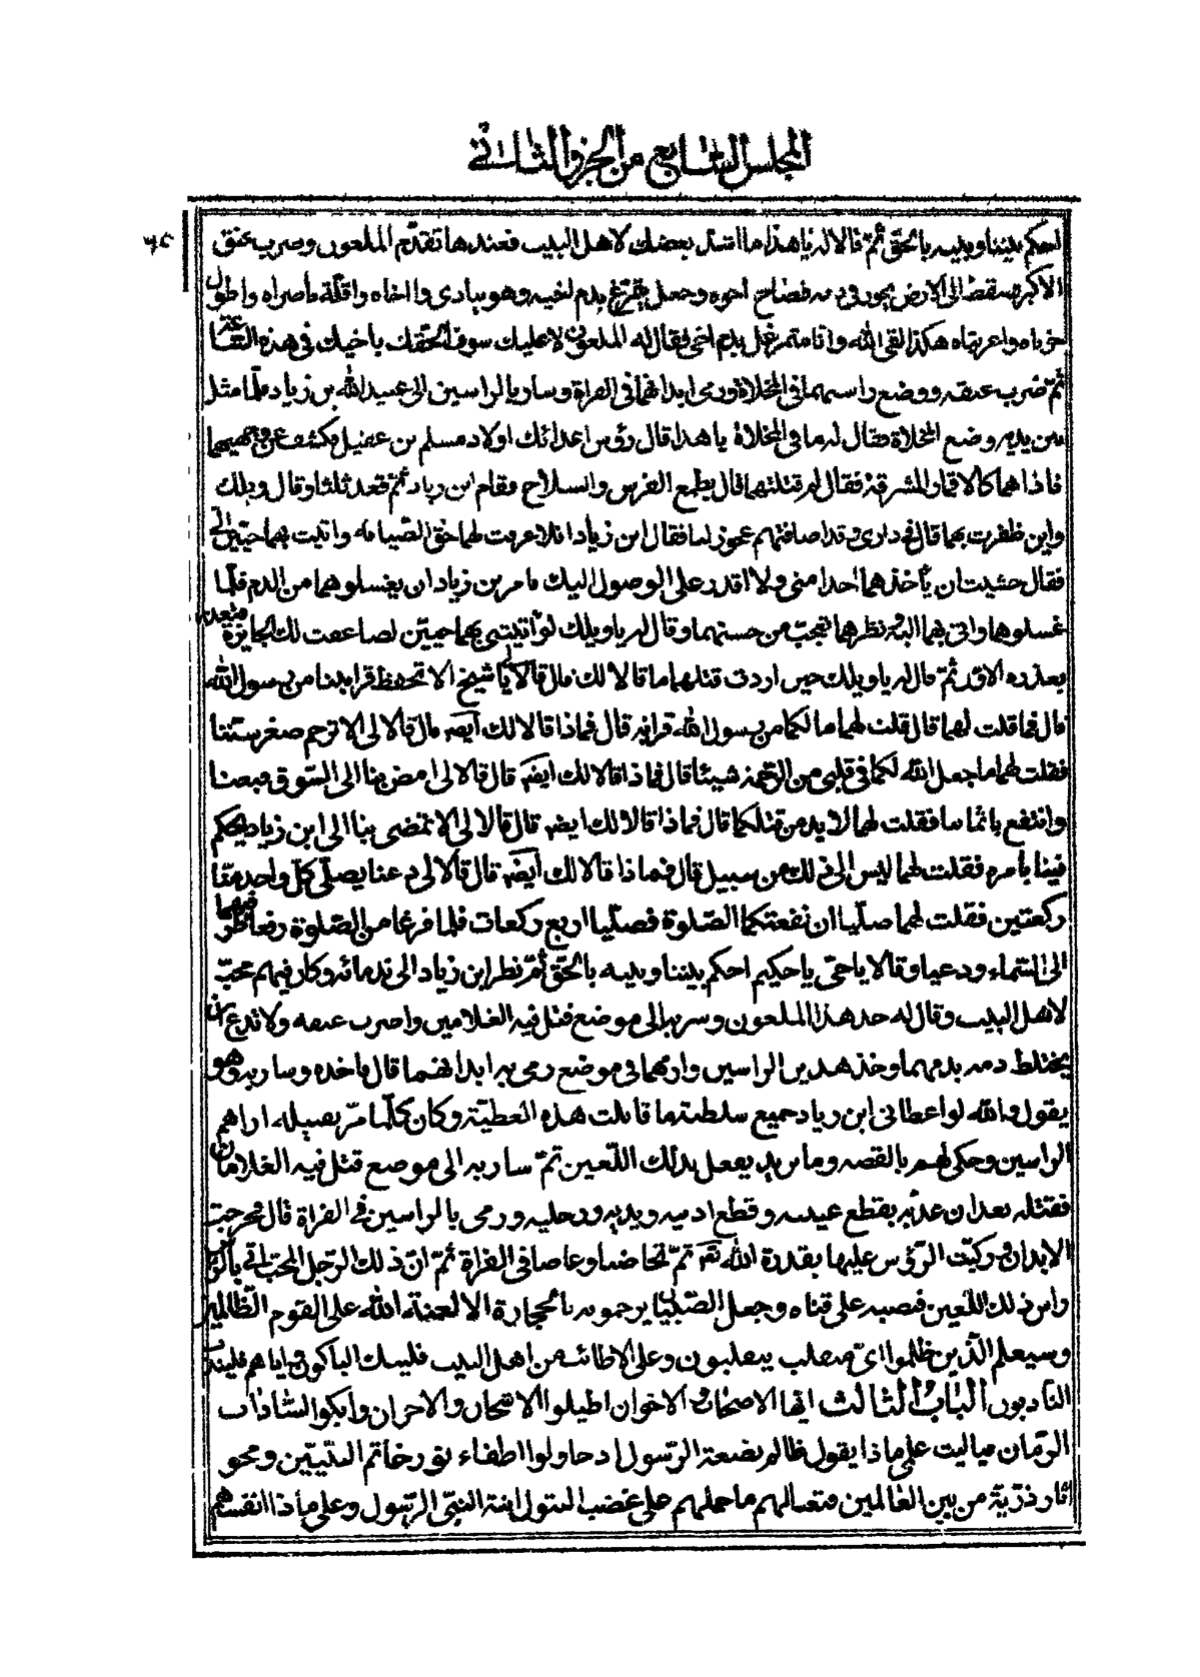 المجلس السابع من الجزو الثاني
احكم بيننا وبينه بالحق ثم قالا له يا هذا ما اشد بغضك لاهل البيت فعندها تقدم الملعون وضرب عنق
الاكبر فسقط الى الارض يخور في دمه فصاح اخوه وجعل يتمرغ بدم اخيه وهو ينادي وا اخاه وا قلة ناصراه وا طول
حزناه وا غربتاه هكذا القى الله وانا متمرغ بدم اخي فقال له الملعون لا عليك سوف الحقك باخيك في هذه الساعة
ثم ضرب عنقه ووضع راسهما في المخلاة ورمى ابدانهما في الفراة وسار بالراسين الى عبيد الله بن زياد فلما مثل
بين يديه وضع المخلاة فقال له ما في المخلاة يا هذا قال رؤس اعدائك اولاد مسلم بن عقيل فكشف عن وجهيهما
فاذا هما كالاقمار المشرقة فقال لم قتلتهما قال بطمع الفرس والسلاح فقام ابن زياد ثم قعد ثلثا وقال ويلك
واين ظفرت بهما قال في داري وقد اضافتهم عجوز لنا فقال ابن زياد افلا عرفت لهما حق الضيافة واتيت بهما حيين الي
فقال خشيت ان يأخذهما احدا مني ولا اقدر على الوصول اليك فامر بن زياد ان يغسلوهما من الدم فلما
غسلوهما واتي بهما اليه نظرهما فتعجب من حسنهما وقال له يا ويلك لو اتيتني بهما حيين لضاعفت لك الجايزة
ثم قال له يا ويلك حين اردت قتلهما ما قالا لك قال قالا لي يا شيخ الا تحفظ قرابتنا من رسول الله
قال فما قلت لهما قال قلت لهما ما لكما من رسول الله قرابة قال فماذا قالا لك ايضه قال قالا لي الا ترحم صغر سننا
فقلت لهما ما جعل الله لكما في قلبي من الرحمة شيئا قال فماذا قالا لك ايضه قال قالا لي امض بنا الى السوق فبعنا
وانتفع باثماننا فقلت لهما لا بد من قتلكما قال فماذا قالا لك ايضه قال قالا لي الا تمضي بنا الى ابن زياد يحكم
فينا بامره فقلت لهما ليس الى ذلك من سبيل قال فماذا قالا لك ايضه قال قالا لي دعنا يصلي كل واحد منا
ركعتين فقلت لهما صليا ان نفعتكما الصلوة فصليا اربع ركعات فلما فرغا من الصلوة رفعا طرفيهما
الى السماء ودعيا وقالا يا حي يا حكيم احكم بيننا وبينه بالحق ثم نظر ابن زياد الى ندمائه وكان فيهم محب
لاهل البيت وقال له خذ هذا الملعون وسر به الى موضع قتل فيه الغلامين واضرب عنقه ولا تدع ان
يختلط دمه بدمهما وخذ هذين الراسين وارمهما في موضع رمى به ابدانهما قال فاخذه وسار به وهو
يقول والله لو اعطاني ابن زياد جميع سلطنته ما قابلت هذه العطية وكان كلما مر بقبيلة اراهم
الراسين وحكى لهم بالقصة وما يريد يفعل بذلك اللعين ثم سار به الى موضع قتل فيه الغلامان
فقتله بعد ان عذبه بقطع عينيه وقطع اذنيه ويديه ورجليه ورمى بالراسين في الفراة قال فخرجت
الابدان وركبت الرؤس عليها بقدرة الله تعه ثم تحاضنا وغاصا في الفراة ثم ان ذلك الرجل المحب اتى
براس ذلك اللعين فنصبه على قناه وجعل الصبيان يرجمونه بالحجارة الا لعنة الله على القوم الظالمين
وسيعلم الذين ظلموا اي منقلب ينقلبون وعلى الاطائب من اهل البيت فليبك الباكون واياهم فليندب
النادبون الباب الثالث ايها الاصحاب والاخوان اطيلوا الاشجان والاحزان وابكوا السادات
الزمان فياليت على ماذا يقول ظالم بضعة الرسول اذ حاولوا اطفاء نور خاتم النبيين ومحو
اثار ذرية من بين العالمين فتعسا لهم ما حملهم على غضب البتول ابنة النبي الرسول وعلى ماذا انفسهم